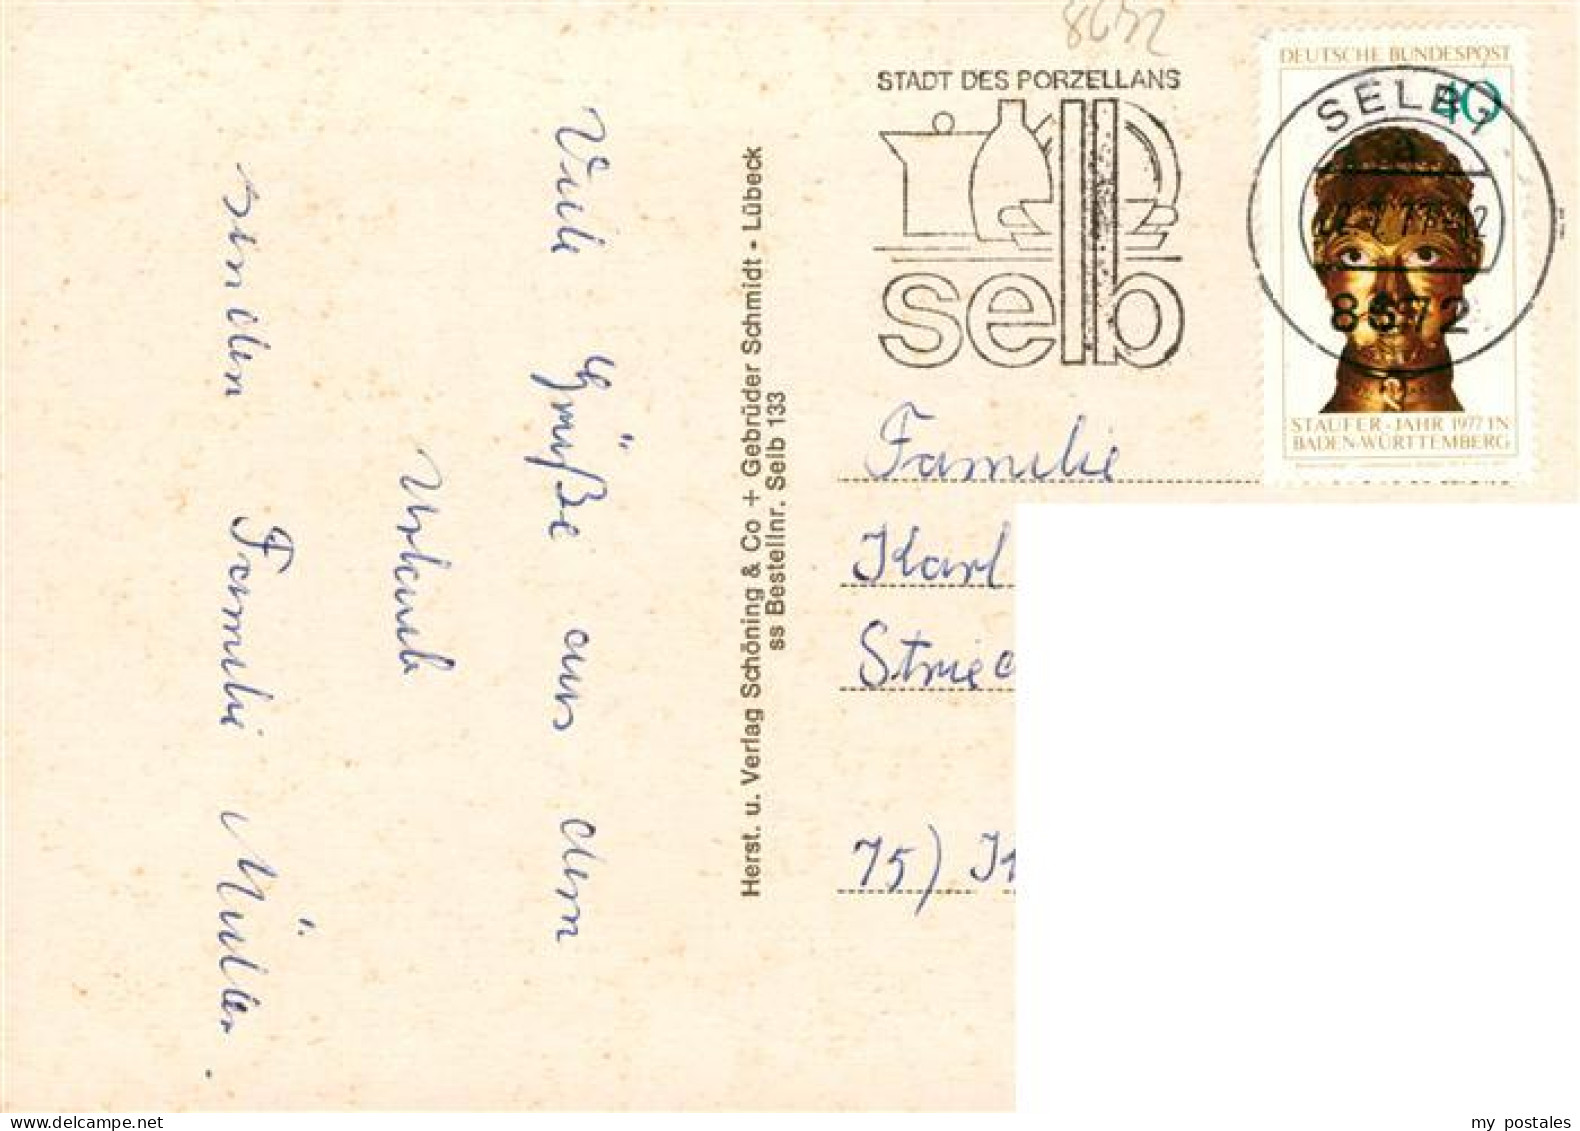 8672
STADT DES PORZELLANS
selb
DEUTSCHE BUNDESPOST
40
SELB 1
8672
STAUFER-JAHR 1977 IN
BADEN-WÜRTTEMBERG
Viele Grüße aus dem
Urlaub
senden Familie Müller.
Herst. u. Verlag Schöning & Co + Gebrüder Schmidt - Lübeck
ss Bestellnr. Selb 133
Familie
Karl
75)
my postales